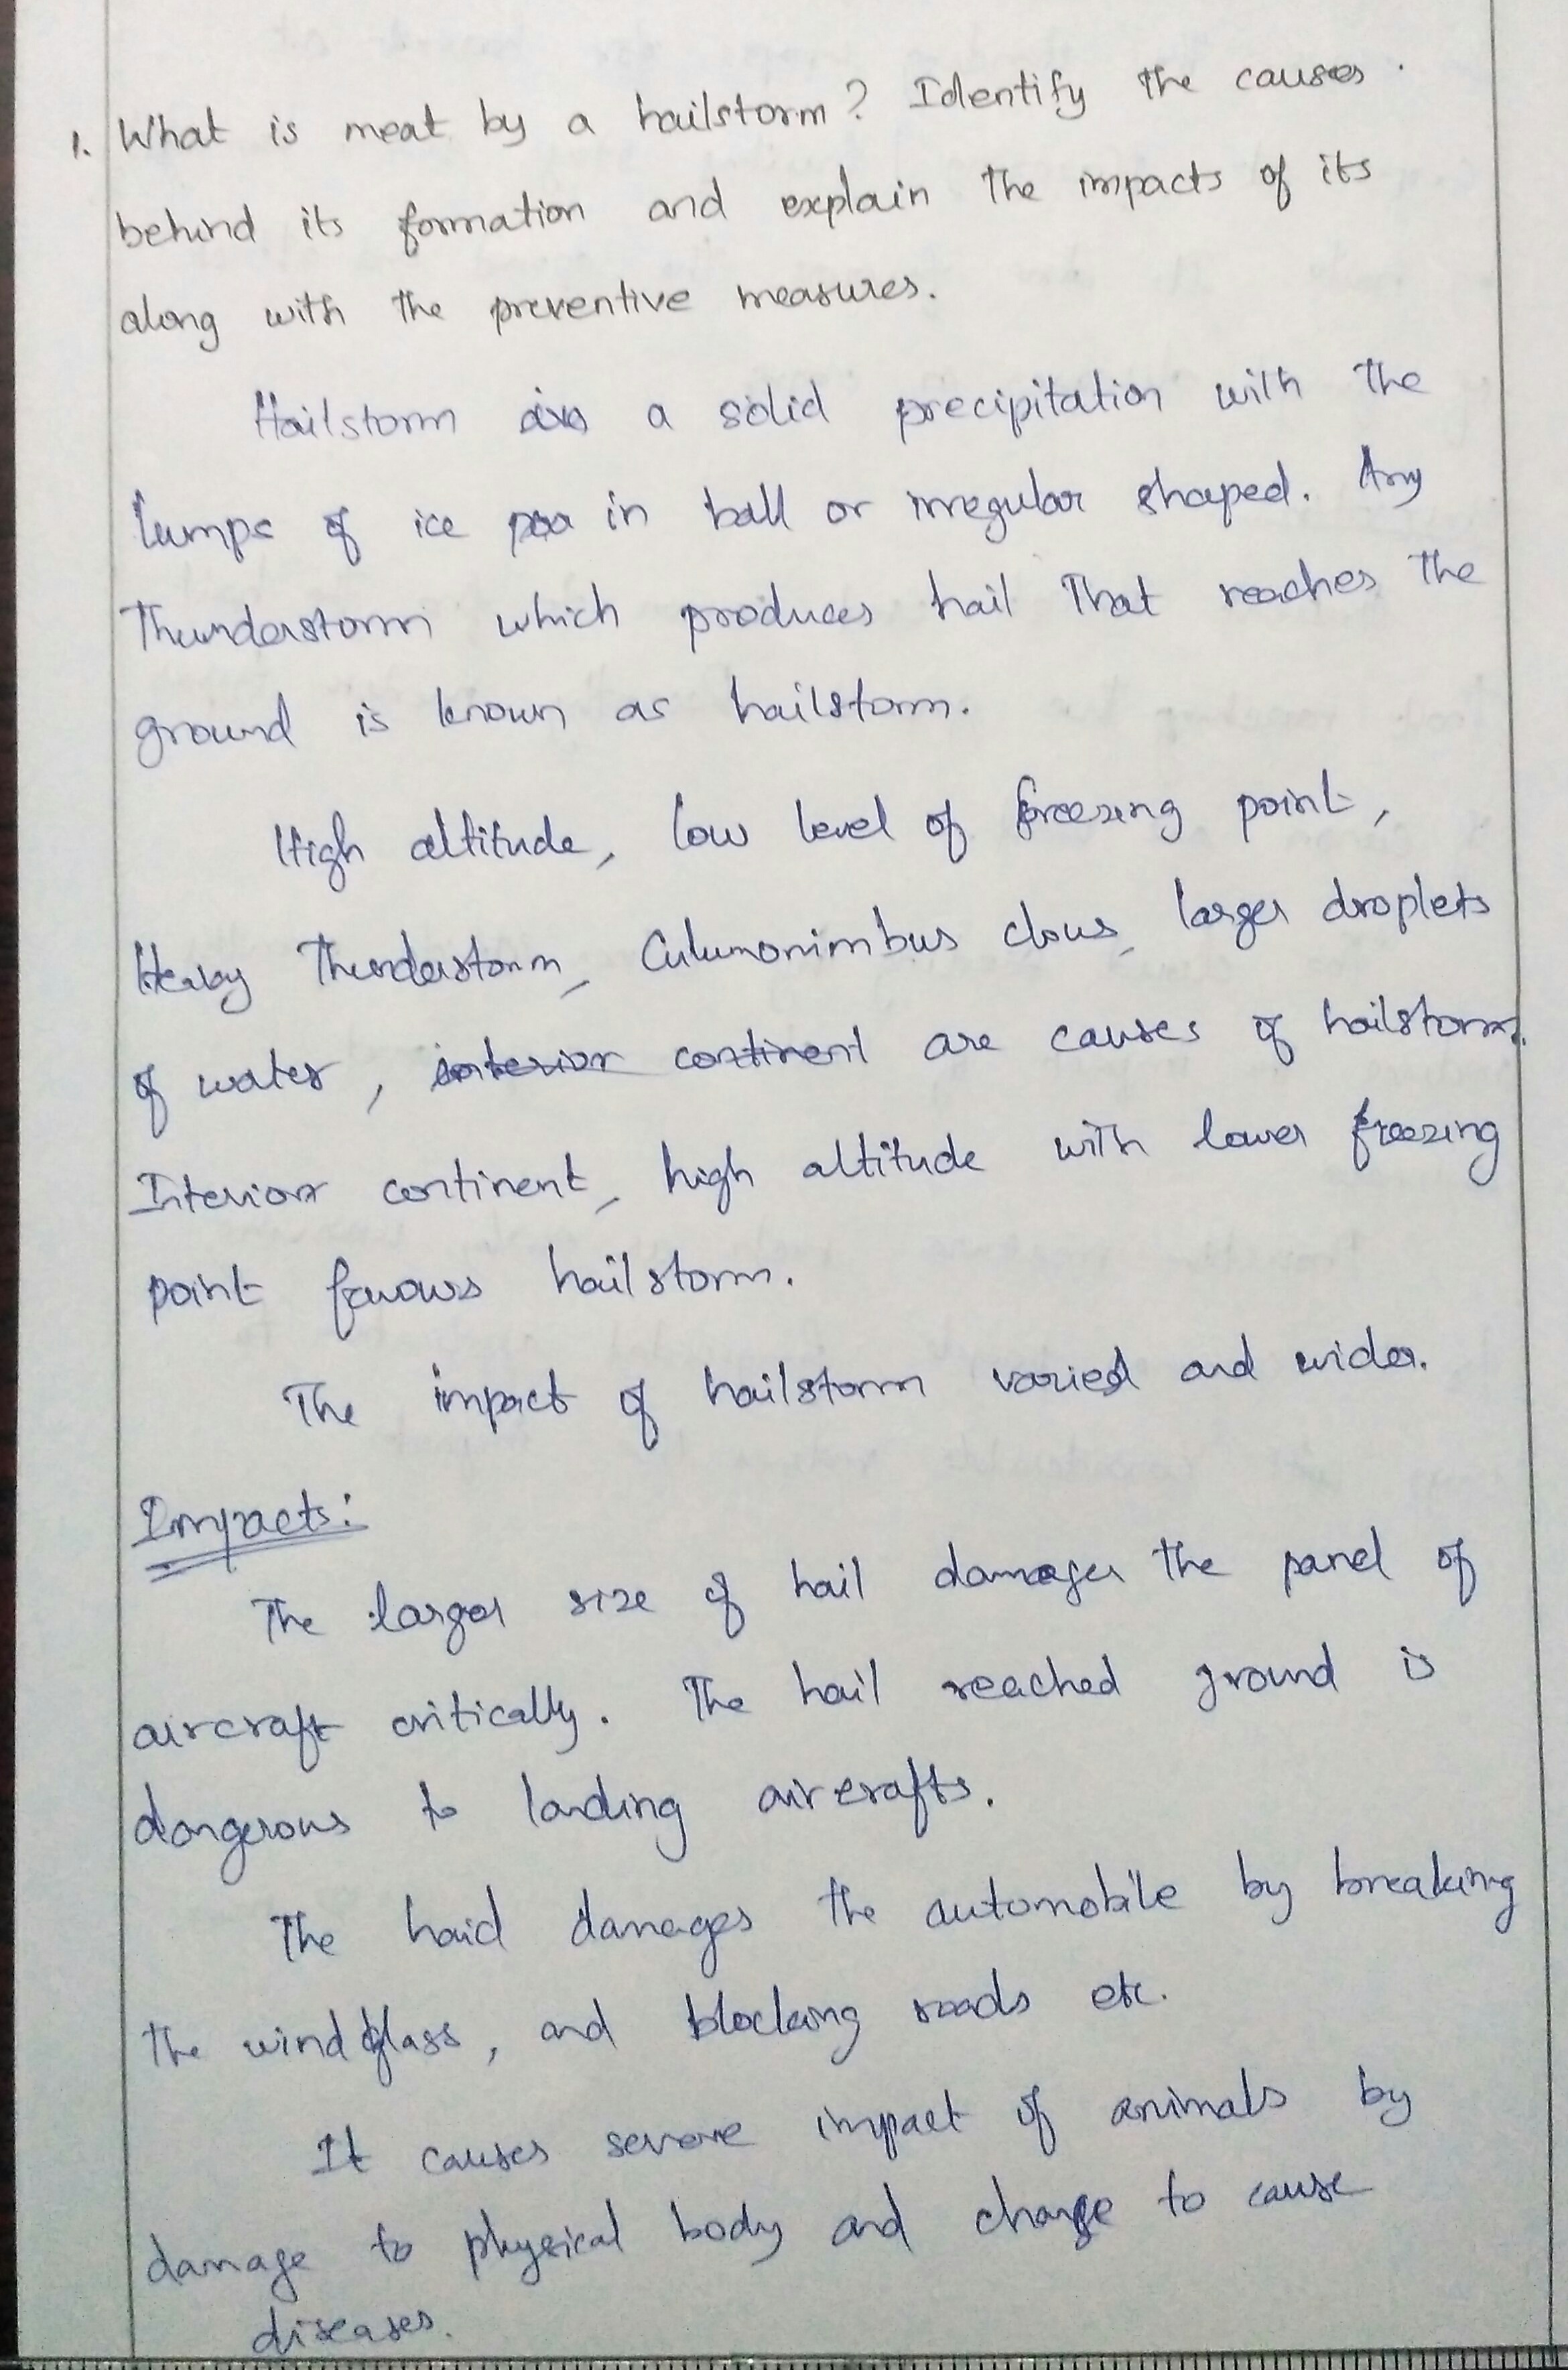 1. What is meat by a hailstorm? Identify the causes
behind its formation and explain the impacts of its
along with the preventive measures.
Hailstorm is a solid precipitation with the
lumps of ice in ball or irregular shaped. Any
Thunderstorm which produces hail that reaches the
ground is known as hailstorm.
High altitude, low level of freezing point,
Heavy Thunderstorm, Culumonimbus clous, larger droplets
of water, interior continent are causes of hailstorm.
Interior continent, high altitude with lower freezing
point favours hailstorm.
The impact of hailstorm varied and wider.
Impacts:
The larger size of hail damages the panel of
aircraft critically. The hail reached ground is
dangerous to landing aircrafts.
The haid damages the automobile by breaking
the wind glass, and blocking roads etc.
It causes severe impact of animals by
damage to physical body and change to cause
diseases.